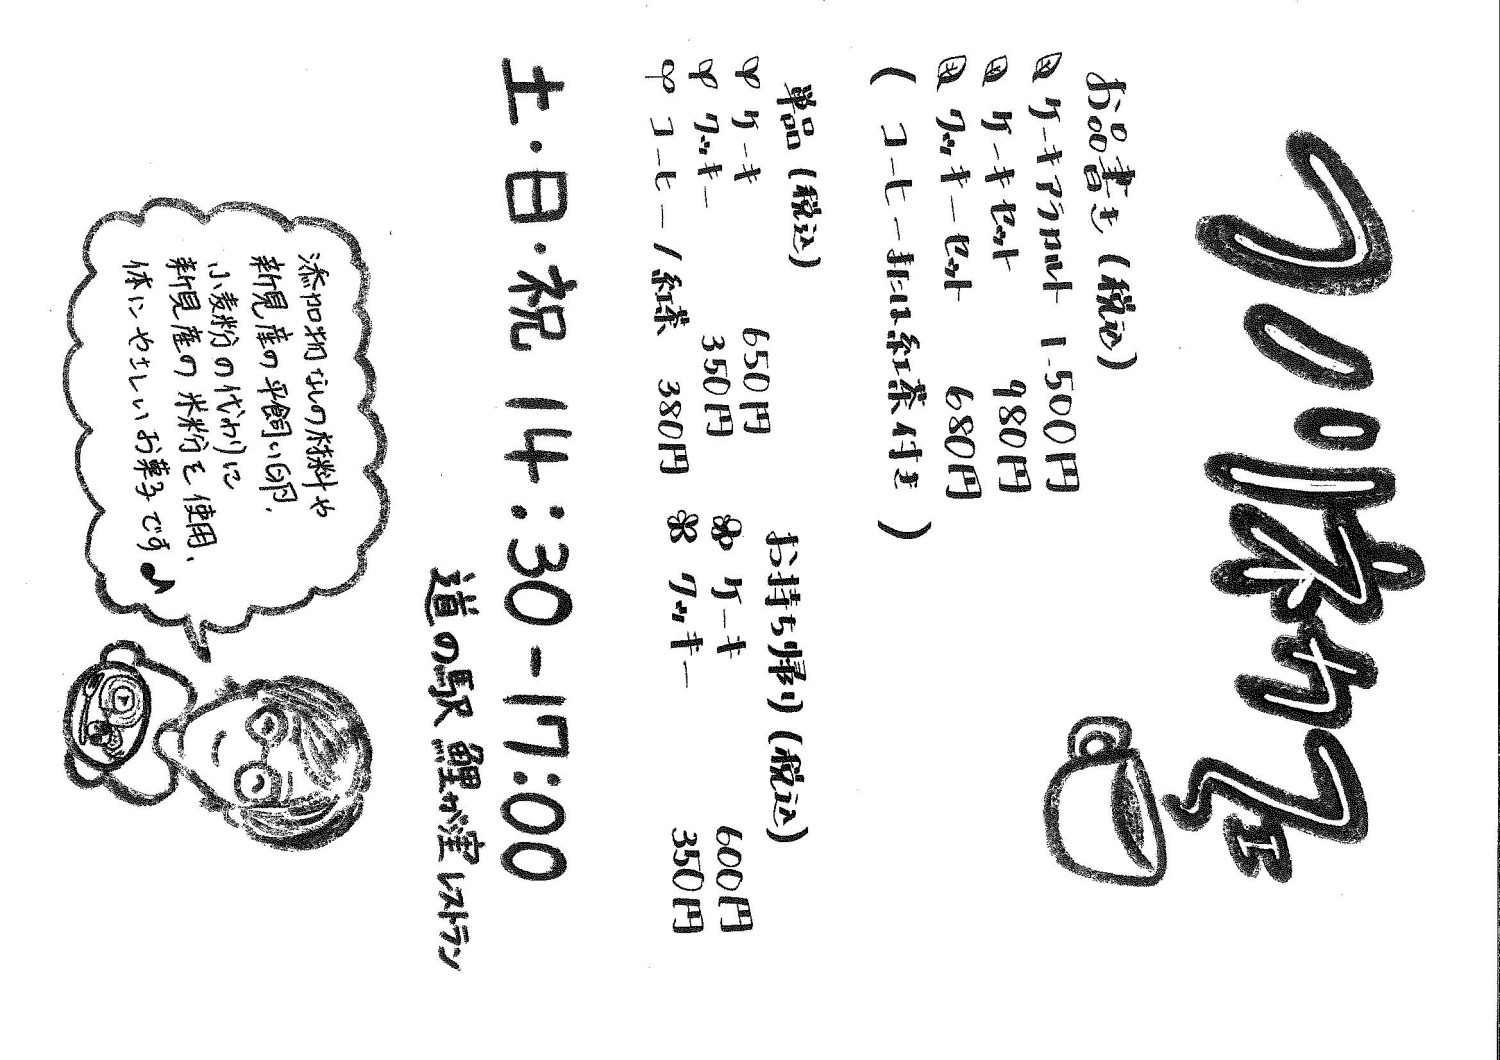 お品書き(税込)
ケーキアラカルト 1.500円
ケーキセット 980円
クッキーセット 680円
(コーヒーまたは紅茶付き)
単品(税込)
ケーキ 650円
クッキー 350円
コーヒー/紅茶 380円
お持ち帰り(税込)
ケーキ 600円
クッキー 350円
土・日・祝 14:30-17:00
道の駅 鯉が窪 レストラン
添加物なしの材料や
新見産の平飼い卵、
小麦粉の代わりに
新見産の米粉を使用、
体にやさしいお菓子です♪